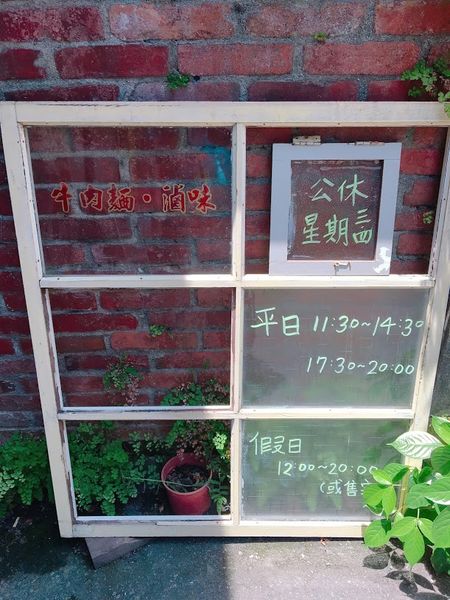 牛肉麵·滷味
公休
星期三四
平日 11:30~14:30
17:30~20:00
假日
12:00~20:00
(或售完